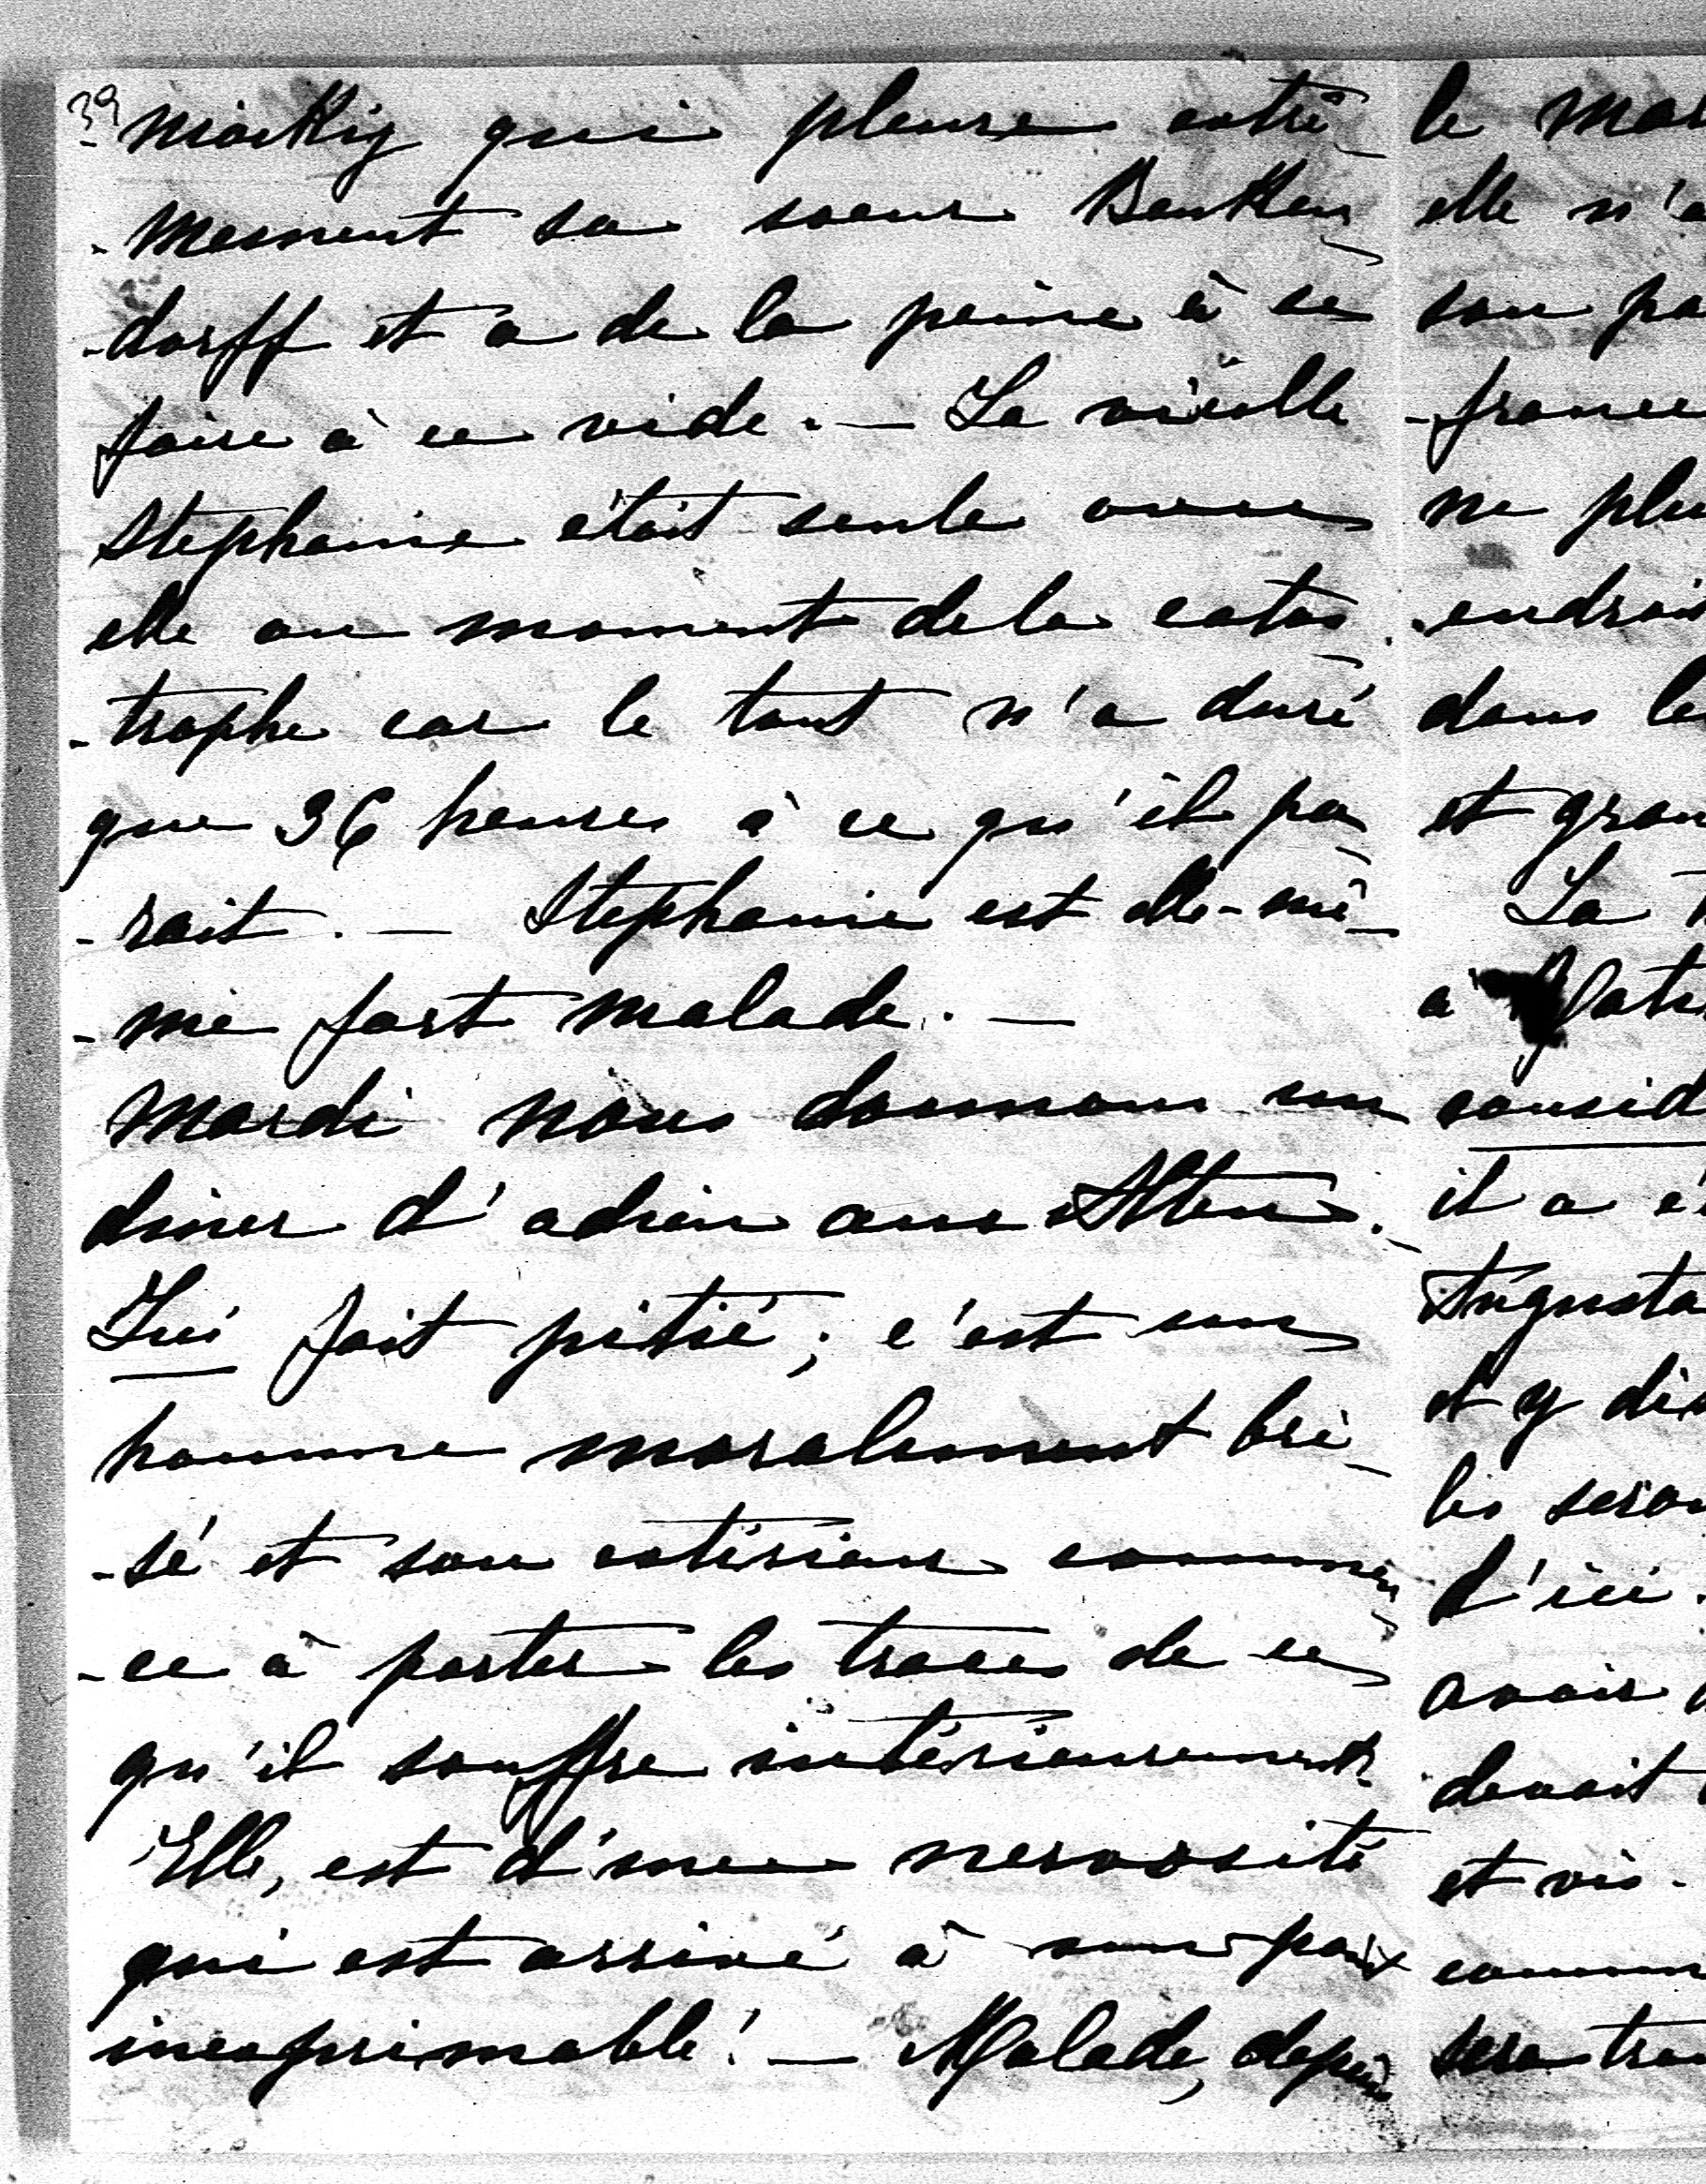 39
-niorKig qui pleure extrê-
-mement sa soeur BenKen-
-dorff et a de la peine à se
faire à ce vide. — La vieille
Stephanie était seule avec
elle au moment de la catas-
-trophe car le tout n'a duré
que 36 heures à ce qu'il pa-
-rait. — Stephanie est elle-mê-
-me fort malade. —
Mardi nous donnons un
diner d'adieu aux Alten.-
Lui fait pitié; c'est un
homme moralement bri-
-sé et son extérieur commen-
-ce à porter les traces de ce
qu'il souffre intérieurement.
Elle, est d'une nervosité
qui est arrivé à un point
inexprimable! — Malade, depuis
le mar
elle n'a
son pa
-france
ne plu
endroi
dans le
et gran
La
à Gats
consid
il a é
Augusta
et y di
les sero
d'ici.
avoir
devait
et vis-
comm
sera tra